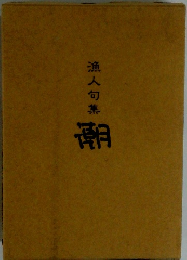 漁人句集
潮